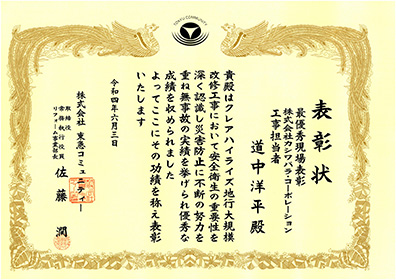 TOKYU COMMUNITY
表彰状
最優秀現場表彰
株式会社カシワバラ・コーポレーション
工事担当者
道中洋平殿
貴殿はクレアハイライズ地行大規模
改修工事において安全衛生の重要性を
深く認識し災害防止に不断の努力を
重ね無事故の実績を挙げられ優秀な
成績を収められました
よってここにその功績を称え表彰
いたします
令和四年六月三日
株式会社 東急コミュニティー
取締役
常務執行役員
リフォーム事業部長
佐藤潤